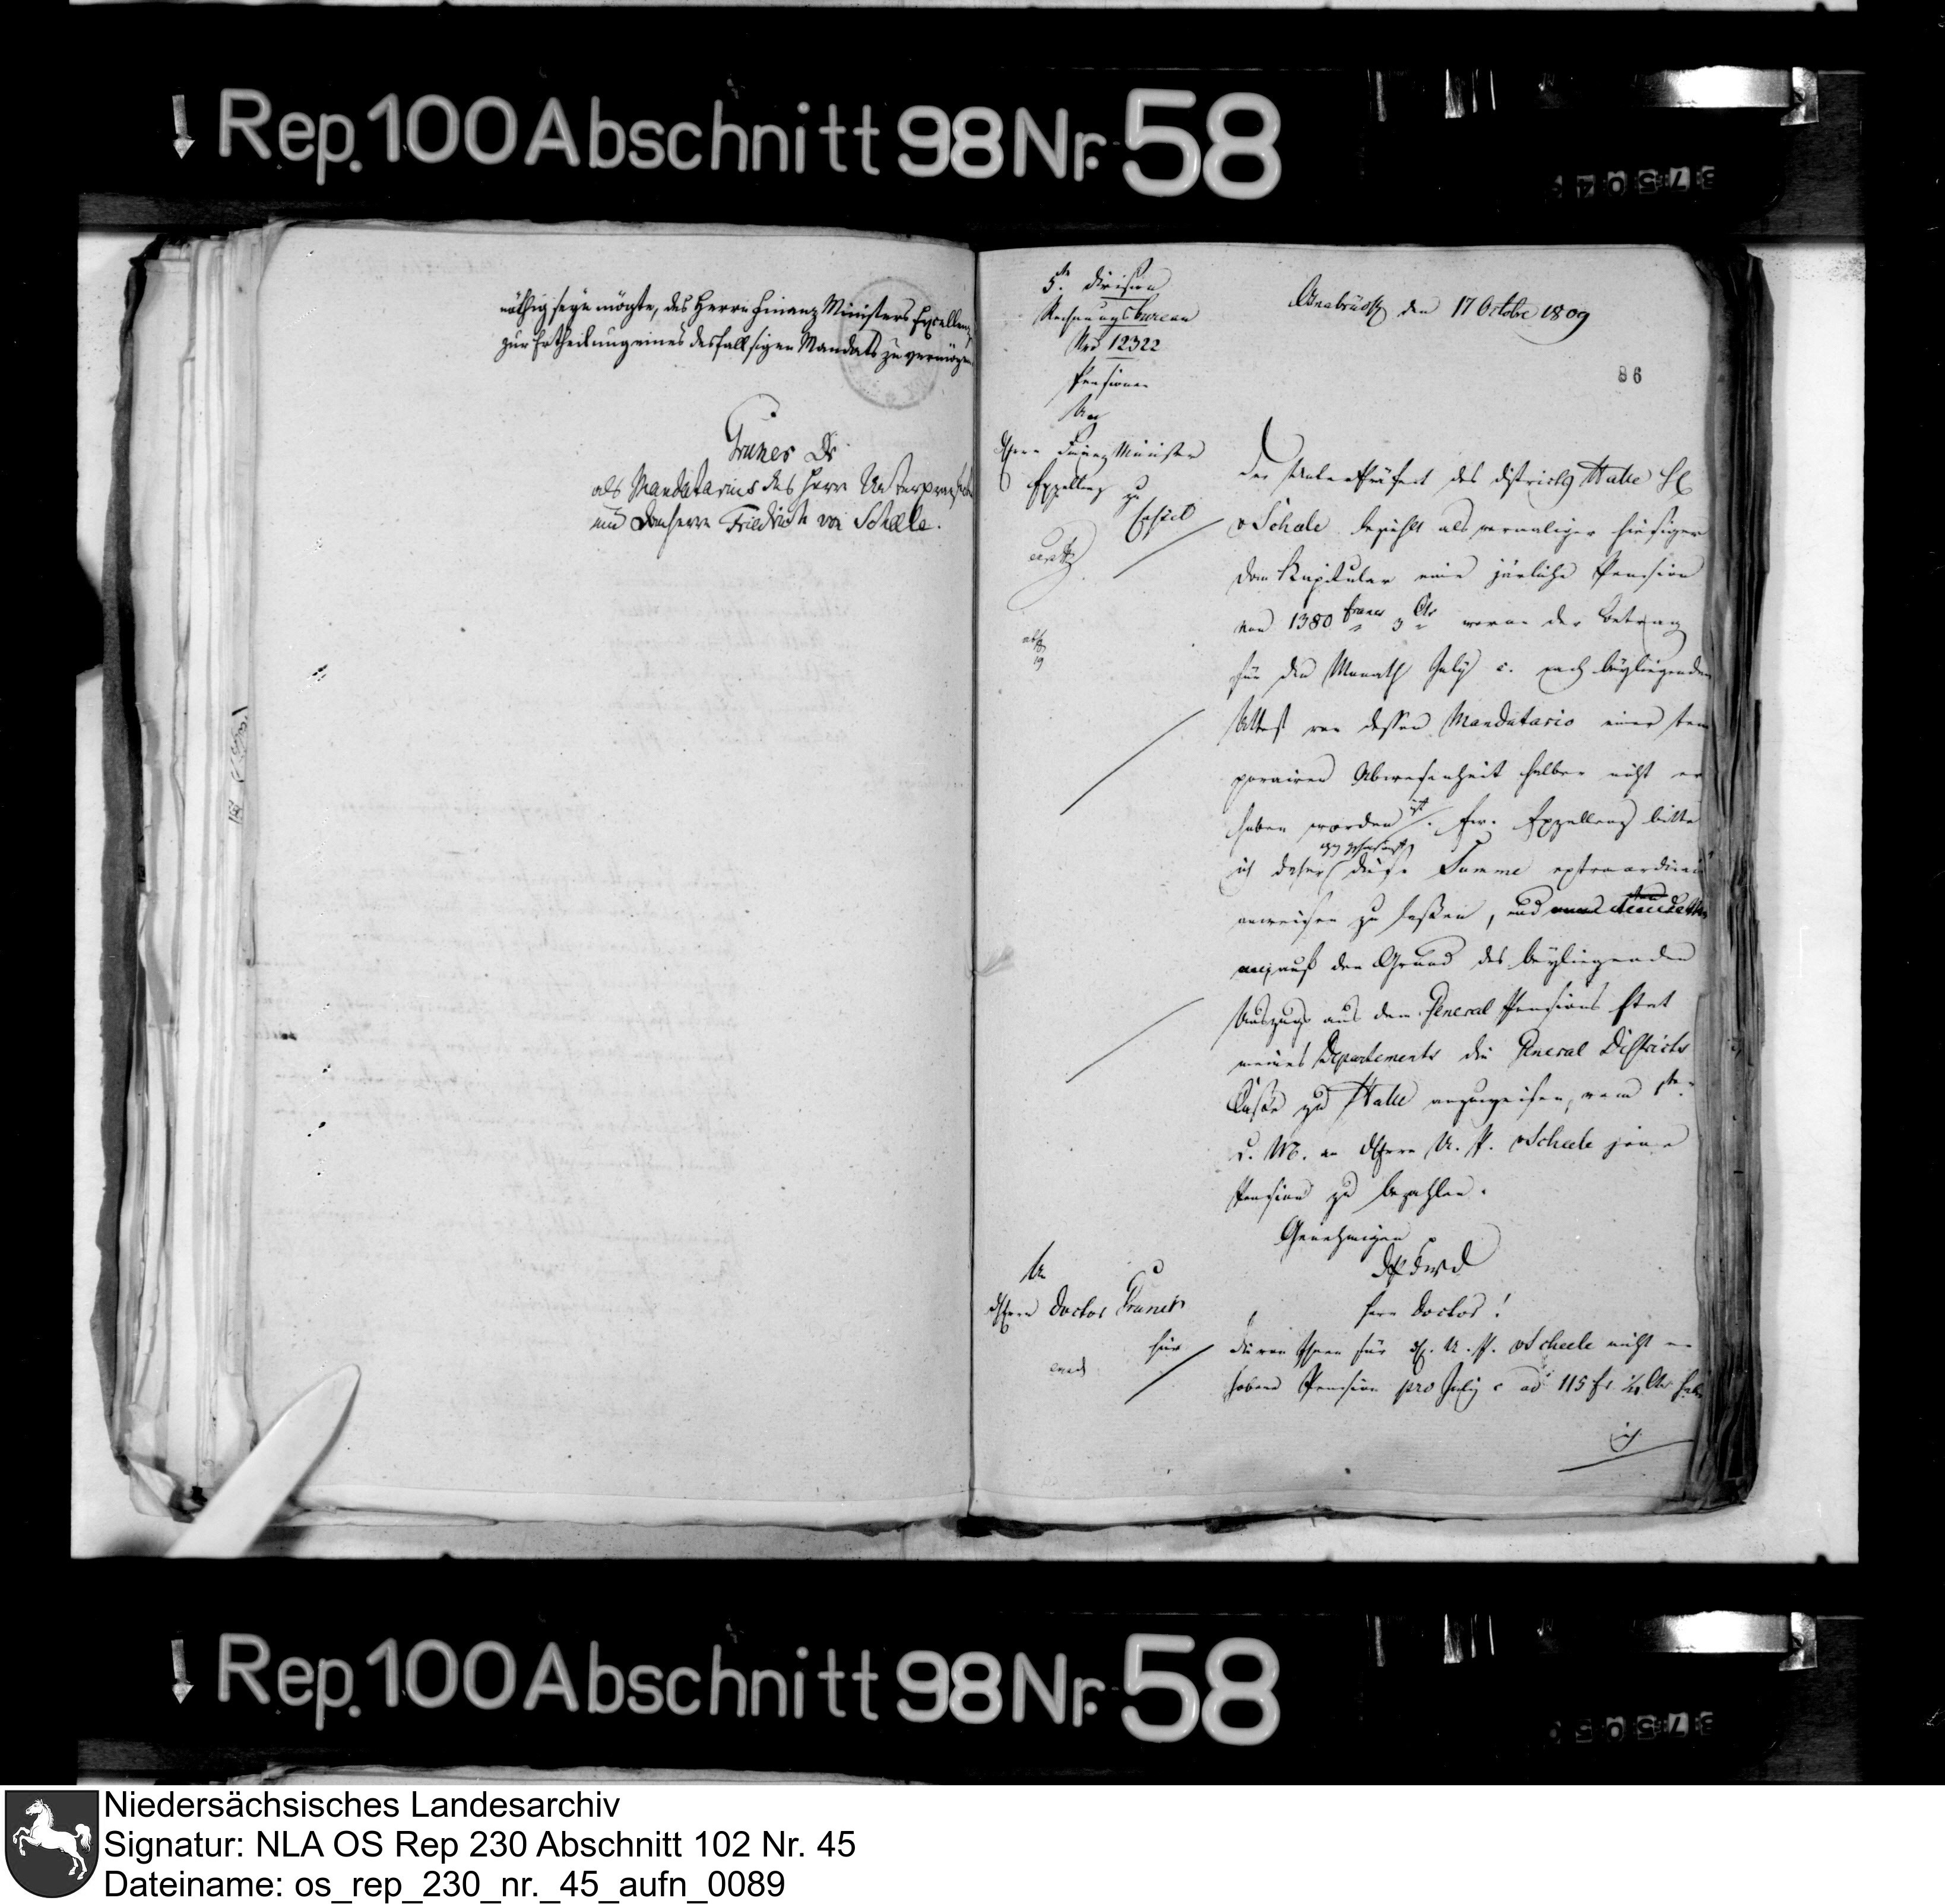 Rep. 100 Abschnitt 98 Nr. 58
nöthig seyn mögte, des Herrn Finanz Ministers Excellenz
zur Ertheilung eines desfallsigen Mandats zu vermögen.
Gruner Dr
als Mandatarius des Herrn Unterpraefecten
und Domherrn Friedrich von Schele.
5te Division
Rechnungsbureau
Nro 12322
Pensionen
An
Herrn Finanz Minister
Excellenz zu
Cassel
Osnabrück den 17 Octobre 1809
86
Der Unterpräfect des Districts Halle H
v Schele bezieht als vormaliger hiesiger
Dom Kapitular eine järliche Pension
von 1380 francs 3 Cts wovon der Betrag
für den Monath July c. nach beyliegendem
Attest von dessen Mandatario einer tem
porairen Abwesenheit halber nicht er
hoben worden ist. Ew. Excellenz bitte
ich daher gehorsamst diese Summe extraordinair
anweisen zu lassen, und
auf den Grund des beyliegenden
Auszugs aus dem General Pensions Etat
meines Departements die General Districts
Casse zu Halle anzuweisen, vom 1ten
d. M. an Herrn U. P. vScheele jene
Pension zu bezahlen.
Genehmigen
An
Herrn Doctor Gruner
hier
Herr Doctor!
Die von Ihnen für H. U. P. vScheele nicht er
hobene Pension pro July c ad 115 fr 1/4 Cts habe
ich
Rep. 100 Abschnitt 98 Nr. 58
Niedersächsisches Landesarchiv
Signatur: NLA OS Rep 230 Abschnitt 102 Nr. 45
Dateiname: os_rep_230_nr._45_aufn_0089